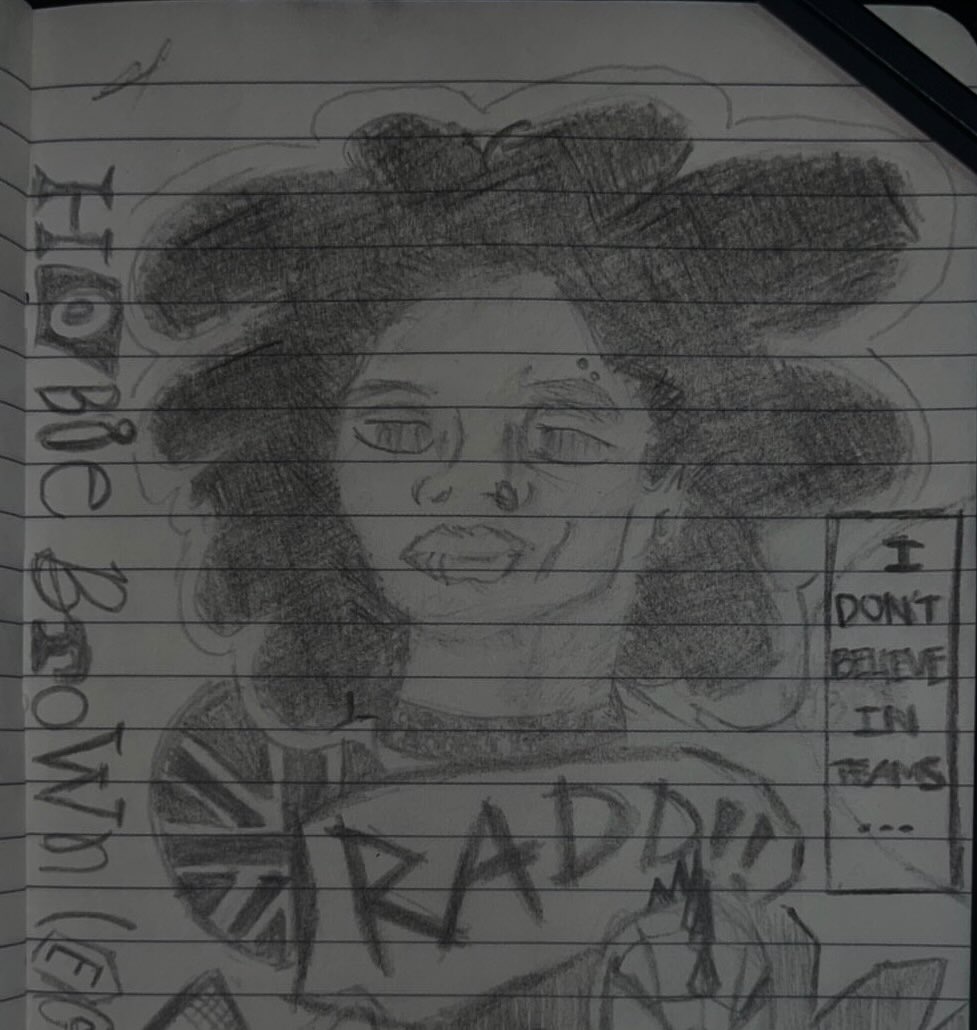 HOBie BroWn
I
DON'T
BELIEVE
IN
TEAMS
...
RADD!!